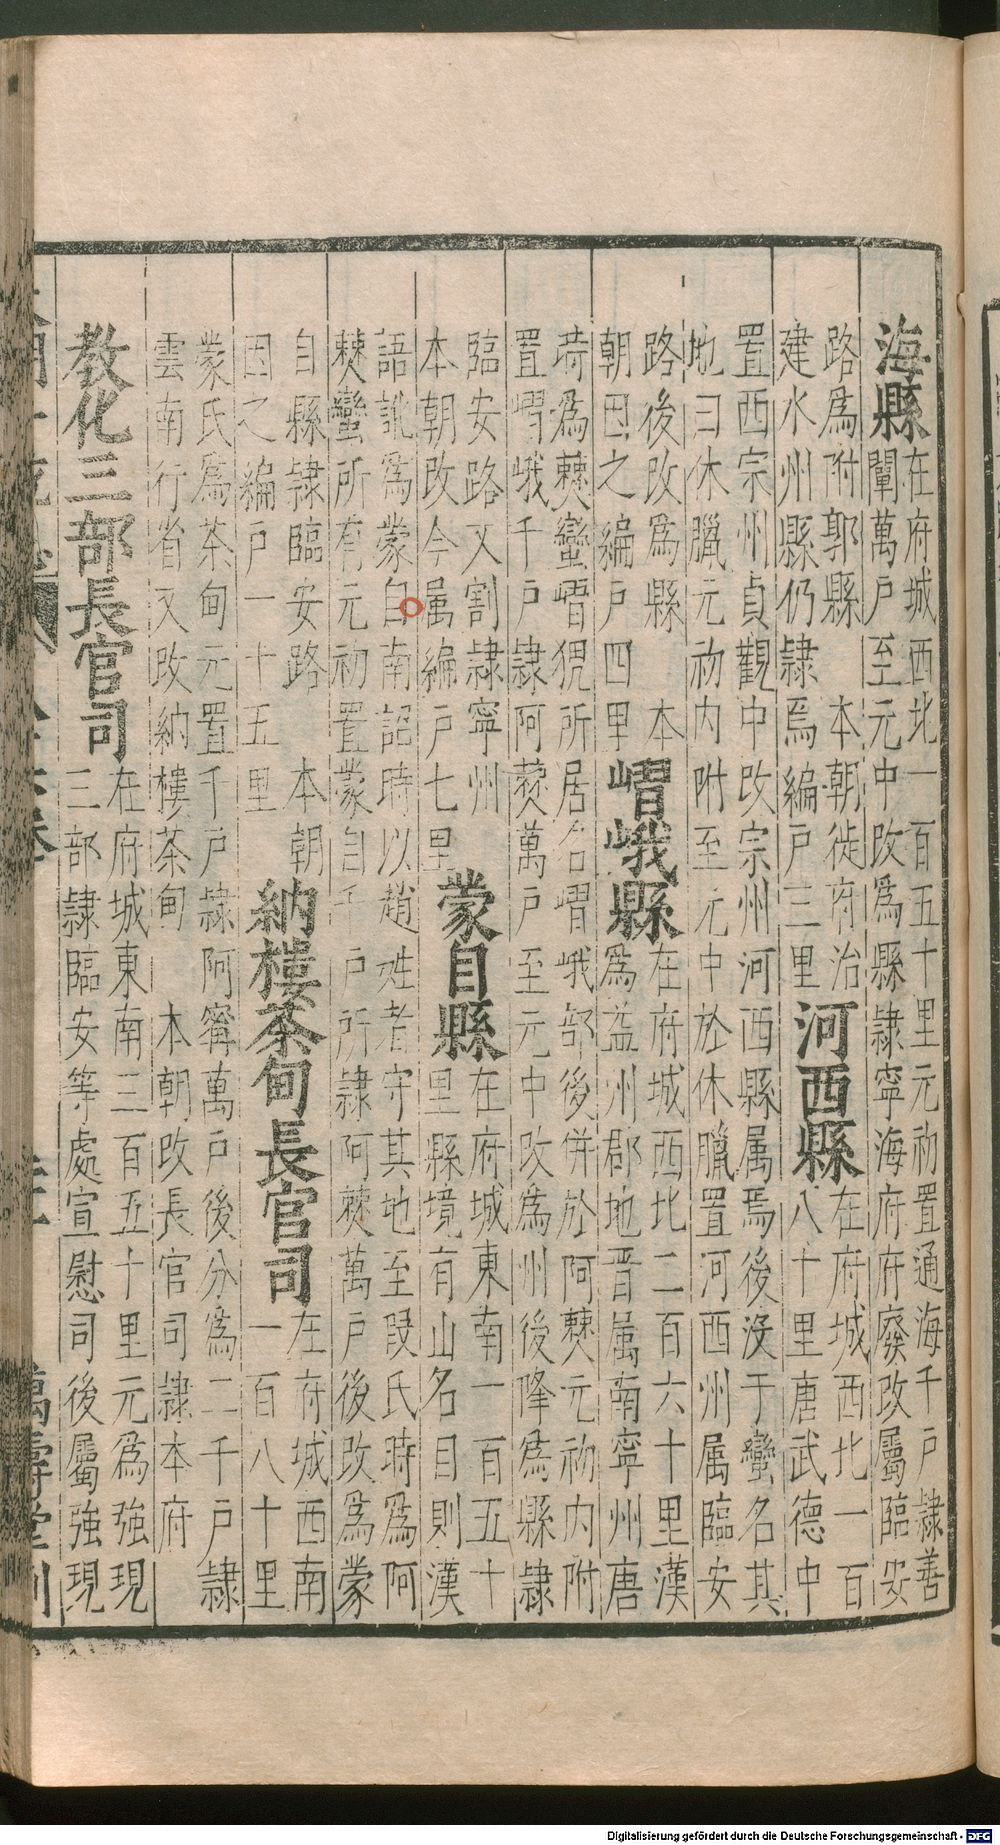 海縣在府城西北一百五十里元初置通海千戶隸善
闡萬戶至元中改爲縣隸寧海府府廢改屬臨安
路爲附郭縣　本朝徙府治
建水州縣仍隸焉編戶三里河西縣在府城西北一百
八十里唐武德中
置西宗州貞觀中改宗州河西縣属焉後没于蠻名其
地曰休臘元初內附至元中於休臘置河西州属臨安
路後改爲縣　本
朝因之編戶四里嶍峨縣在府城西北二百六十里漢
爲益州郡地晋属南寧州唐
㟢爲僰蠻嶍猊所居名嶍峨部後併於阿僰元初內附
置嶍峨千戶隸阿僰萬戶至元中改爲州後降爲縣隸
臨安路又割隸寧州
本朝改今属編戶七里蒙自縣在府城東南一百五十
里縣境有山名目則漢
語訛爲蒙自南詔時以趙姓者守其地至段氏時爲阿
僰蠻所有元初置蒙自千戶所隸阿僰萬戶後改爲蒙
自縣隸臨安路　本朝
因之編戶一十五里納樓茶甸長官司在府城西南
一百八十里
蒙氏爲茶甸元置千戶隸阿寧萬戶後分爲二千戶隸
雲南行省又改納樓茶甸　本朝改長官司隸本府
教化三部長官司在府城東南三百五十里元爲強現
三部隸臨安等處宣慰司後屬強現
萬壽堂刊
Digitalisierung gefördert durch die Deutsche Forschungsgemeinschaft - DFG